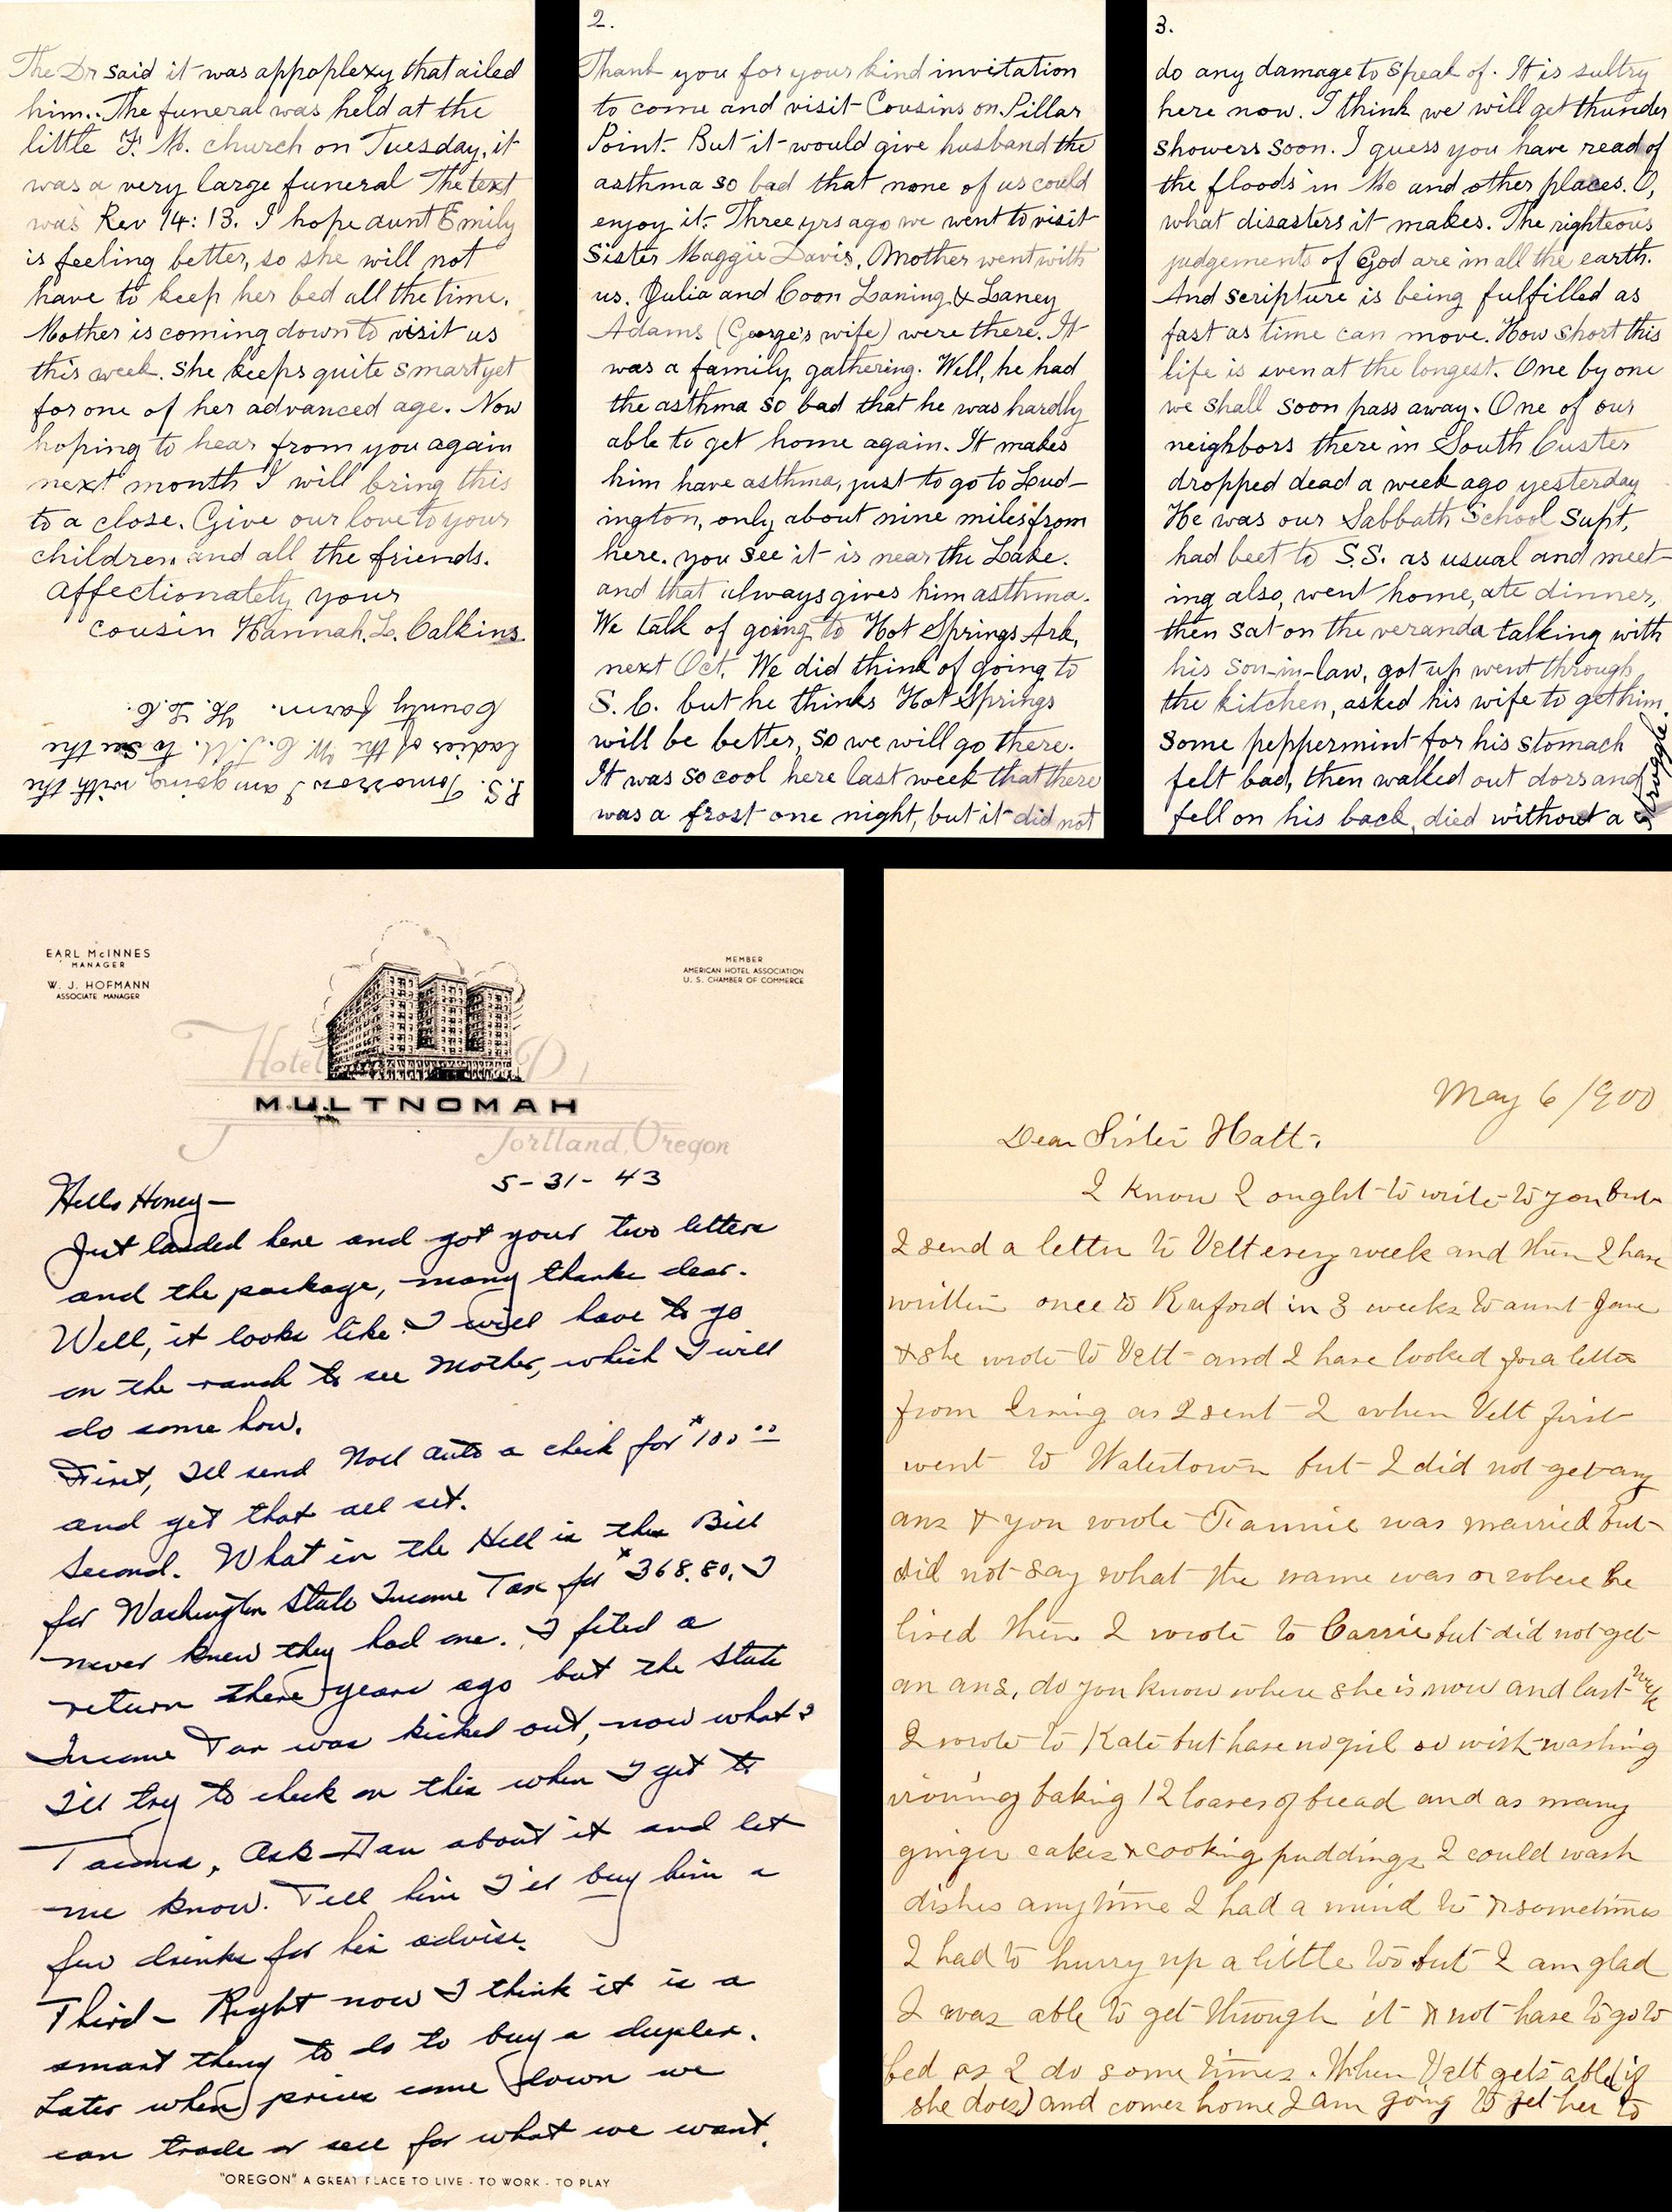 The Dr said it was appoplexy that ailed
him. The funeral was held at the
little F. M. church on Tuesday, it
was a very large funeral The text
was Rev 14: 13. I hope aunt Emily
is feeling better, so she will not
have to keep her bed all the time.
Mother is coming down to visit us
this week. She keeps quite smart yet
for one of her advanced age. Now
hoping to hear from you again
next month I will bring this
to a close. Give our love to your
children and all the friends.
Affectionately your
cousin Hannah. L. Calkins
P.S. Tomorrow I am going with the
Ladies of the W. C. T. U. to see the
County farm. H. L. C.
2.
Thank you for your kind invitation
to come and visit Cousins on Pillar
Point. But it would give husband the
asthma so bad that none of us could
enjoy it. Three yrs ago we went to visit
Sister Maggie Davis. Mother went with
us. Julia and Coon Laning & Laney
Adams (George's wife) were there. It
was a family gathering. Well, he had
the asthma so bad that he was hardly
able to get home again. It makes
him have asthma, just to go to Lud-
ington, only about nine miles from
here. you see it is near the Lake.
and that always gives him asthma.
We talk of going to Hot Springs Ark,
next Oct. We did think of going to
S. C. but he thinks Hot Springs
will be better, so we will go there.
It was so cool here last week that there
was a frost one night, but it did not
3.
do any damage to speak of. It is sultry
here now. I think we will get thunder
showers soon. I guess you have read of
the floods in Mo and other places. O,
what disasters it makes. The righteous
judgements of God are in all the earth.
And scripture is being fulfilled as
fast as time can move. How short this
life is even at the longest. One by one
we shall soon pass away. One of our
neighbors there in South Custer
dropped dead a week ago yesterday
He was our Sabbath School Supt,
had beet to S.S. as usual and meet-
ing also, went home, ate dinner,
then sat on the veranda talking with
his son-in-law, got up went through
the kitchen, asked his wife to get him
some peppermint for his stomach
felt bad, then walked out dors and
fell on his back, died without a
struggle.
EARL McINNES
MANAGER
W. J. HOFMANN
ASSOCIATE MANAGER
MEMBER
AMERICAN HOTEL ASSOCIATION
U. S. CHAMBER OF COMMERCE
Hotel
MULTNOMAH
Portland, Oregon
5-31-43
Hello Honey-
Just landed here and got your two letters
and the package, many thanks dear.
Well, it looks like I will have to go
on the ranch to see Mother, which I will
do some how.
First, I'll send Noel Auto a check for $100.00
and get that all set.
Second. What in the Hell is the Bill
for Washington State Income Tax for $368.80. I
never knew they had one. I filed a
return there years ago but the State
Income Tax was kicked out, now what?
I'll try to check on this when I get to
Tacoma, Ask Dan about it and let
me know. Tell him I'll buy him a
few drinks for his advise.
Third- Right now I think it is a
smart thing to do to buy a duplex.
Later when prices come down we
can trade or sell for what we want.
"OREGON" A GREAT PLACE TO LIVE - TO WORK - TO PLAY
May 6/900
Dear Sister Hatt.
I know I ought to write to you but
I send a letter to Vett every week and then I have
written once to Ruford in 3 weeks to aunt Jane
& she wrote to Vett and I have looked for a letter
from Irving as I sent 2 when Vett first
went to Watertown but I did not get any
ans & you wrote Fannie was married but
did not say what the name was or where he
lived then I wrote to Carrie but did not get
an ans, do you know where she is now and last week
I wrote to Kate but have no girl so wish washing
ironing baking 12 loaves of bread and as many
ginger cakes & cooking puddings I could wash
dishes anytime I had a mind to & sometimes
I had to hurry up a little too but I am glad
I was able to get through it & not have to go to
bed as I do some times. When Vett gets able (if
she does) and comes home I am going to get her to